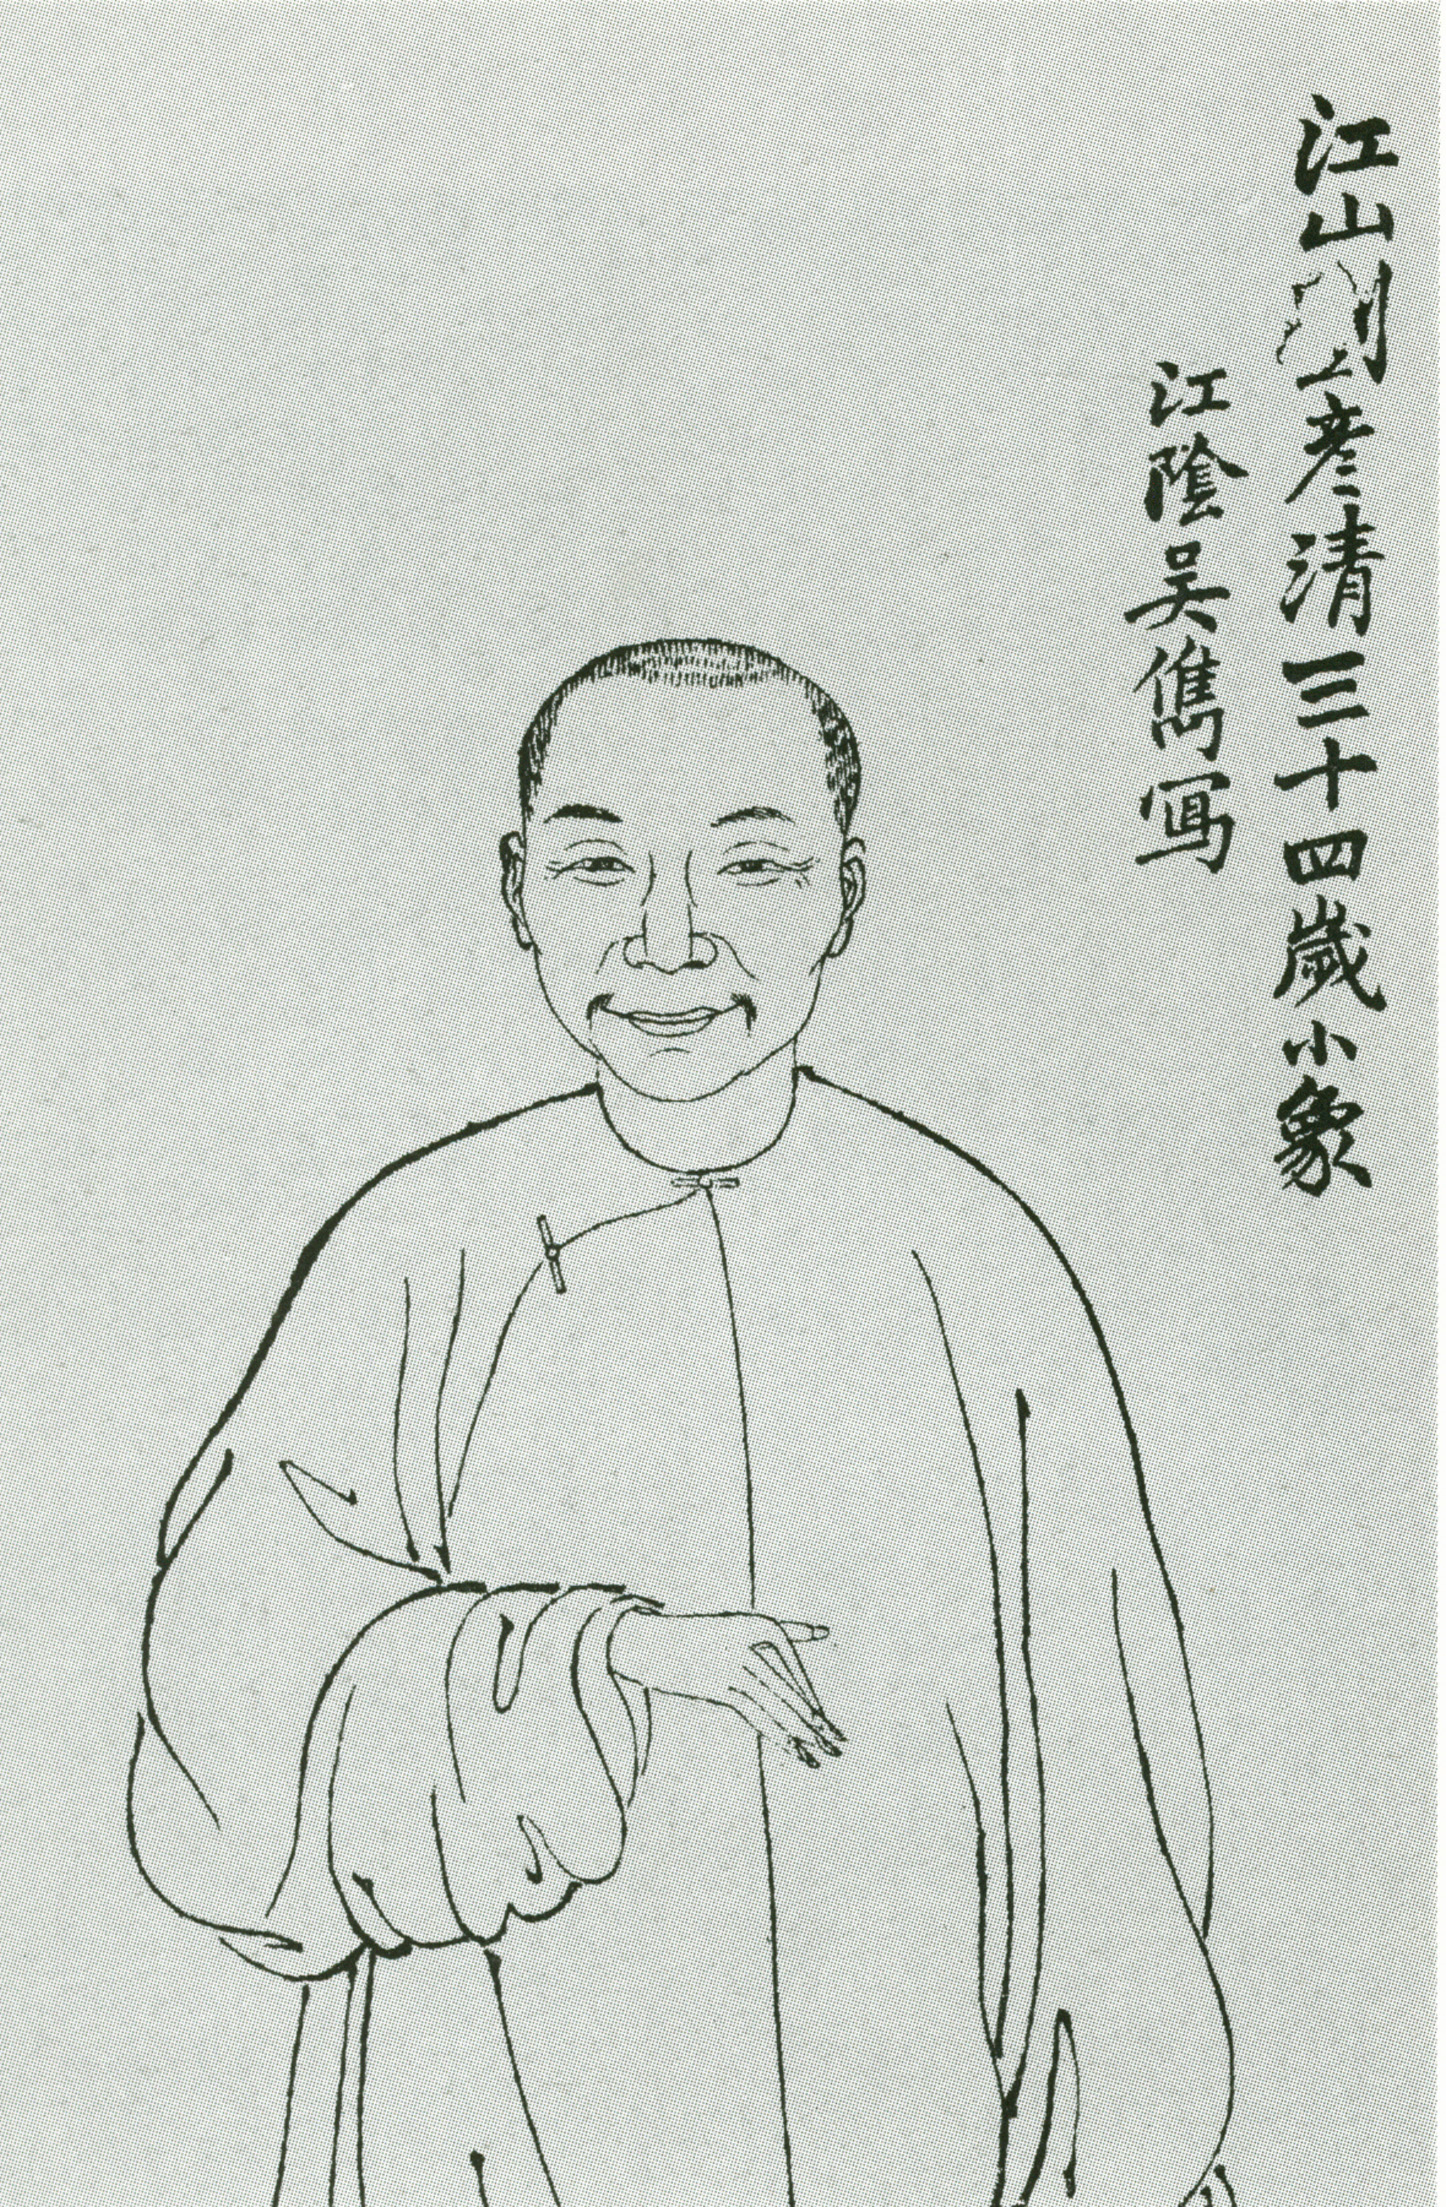 江山劉彥清三十四歲小象
江陰吴儁寫